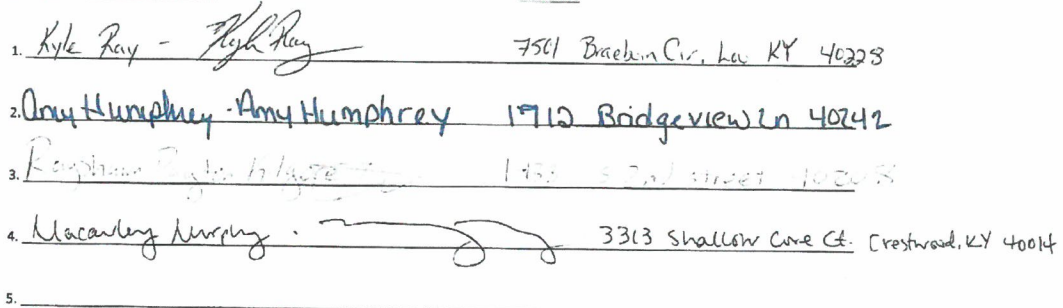 1. Kyle Ray - Kyle Ray 7501 Cir, Lou KY 40228
2. Amy Humphrey - Amy Humphrey 1912 Bridgeview Ln 40242
3. Kilgore street 40208
4. Macauley Murphy. 3313 Shallow Cove Ct. Crestwood, KY 40014
5.